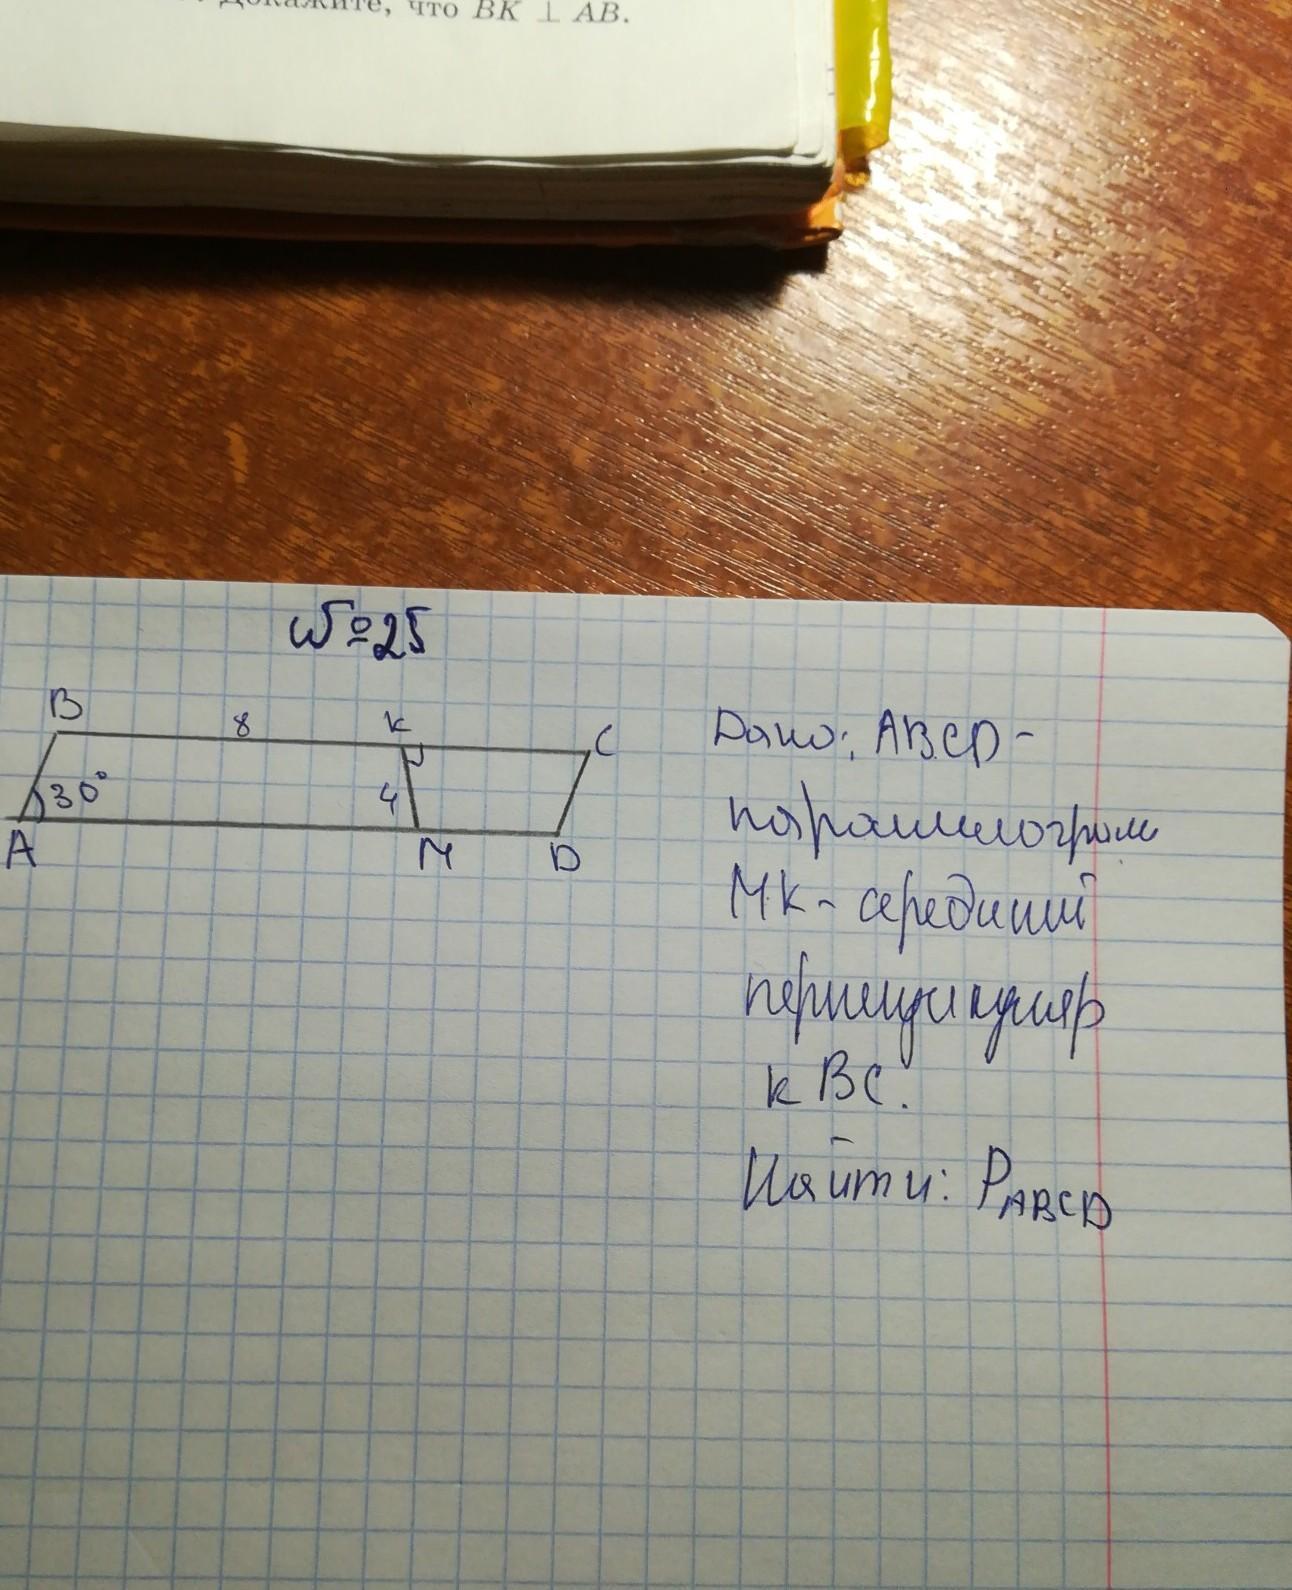 Докажите, что BK ⊥ AB.
№25
B 8 K C
30° 4
A M D
Дано: ABCD -
параллелограмм
MK - серединный
перпендикуляр
к BC.
Найти: P_ABCD